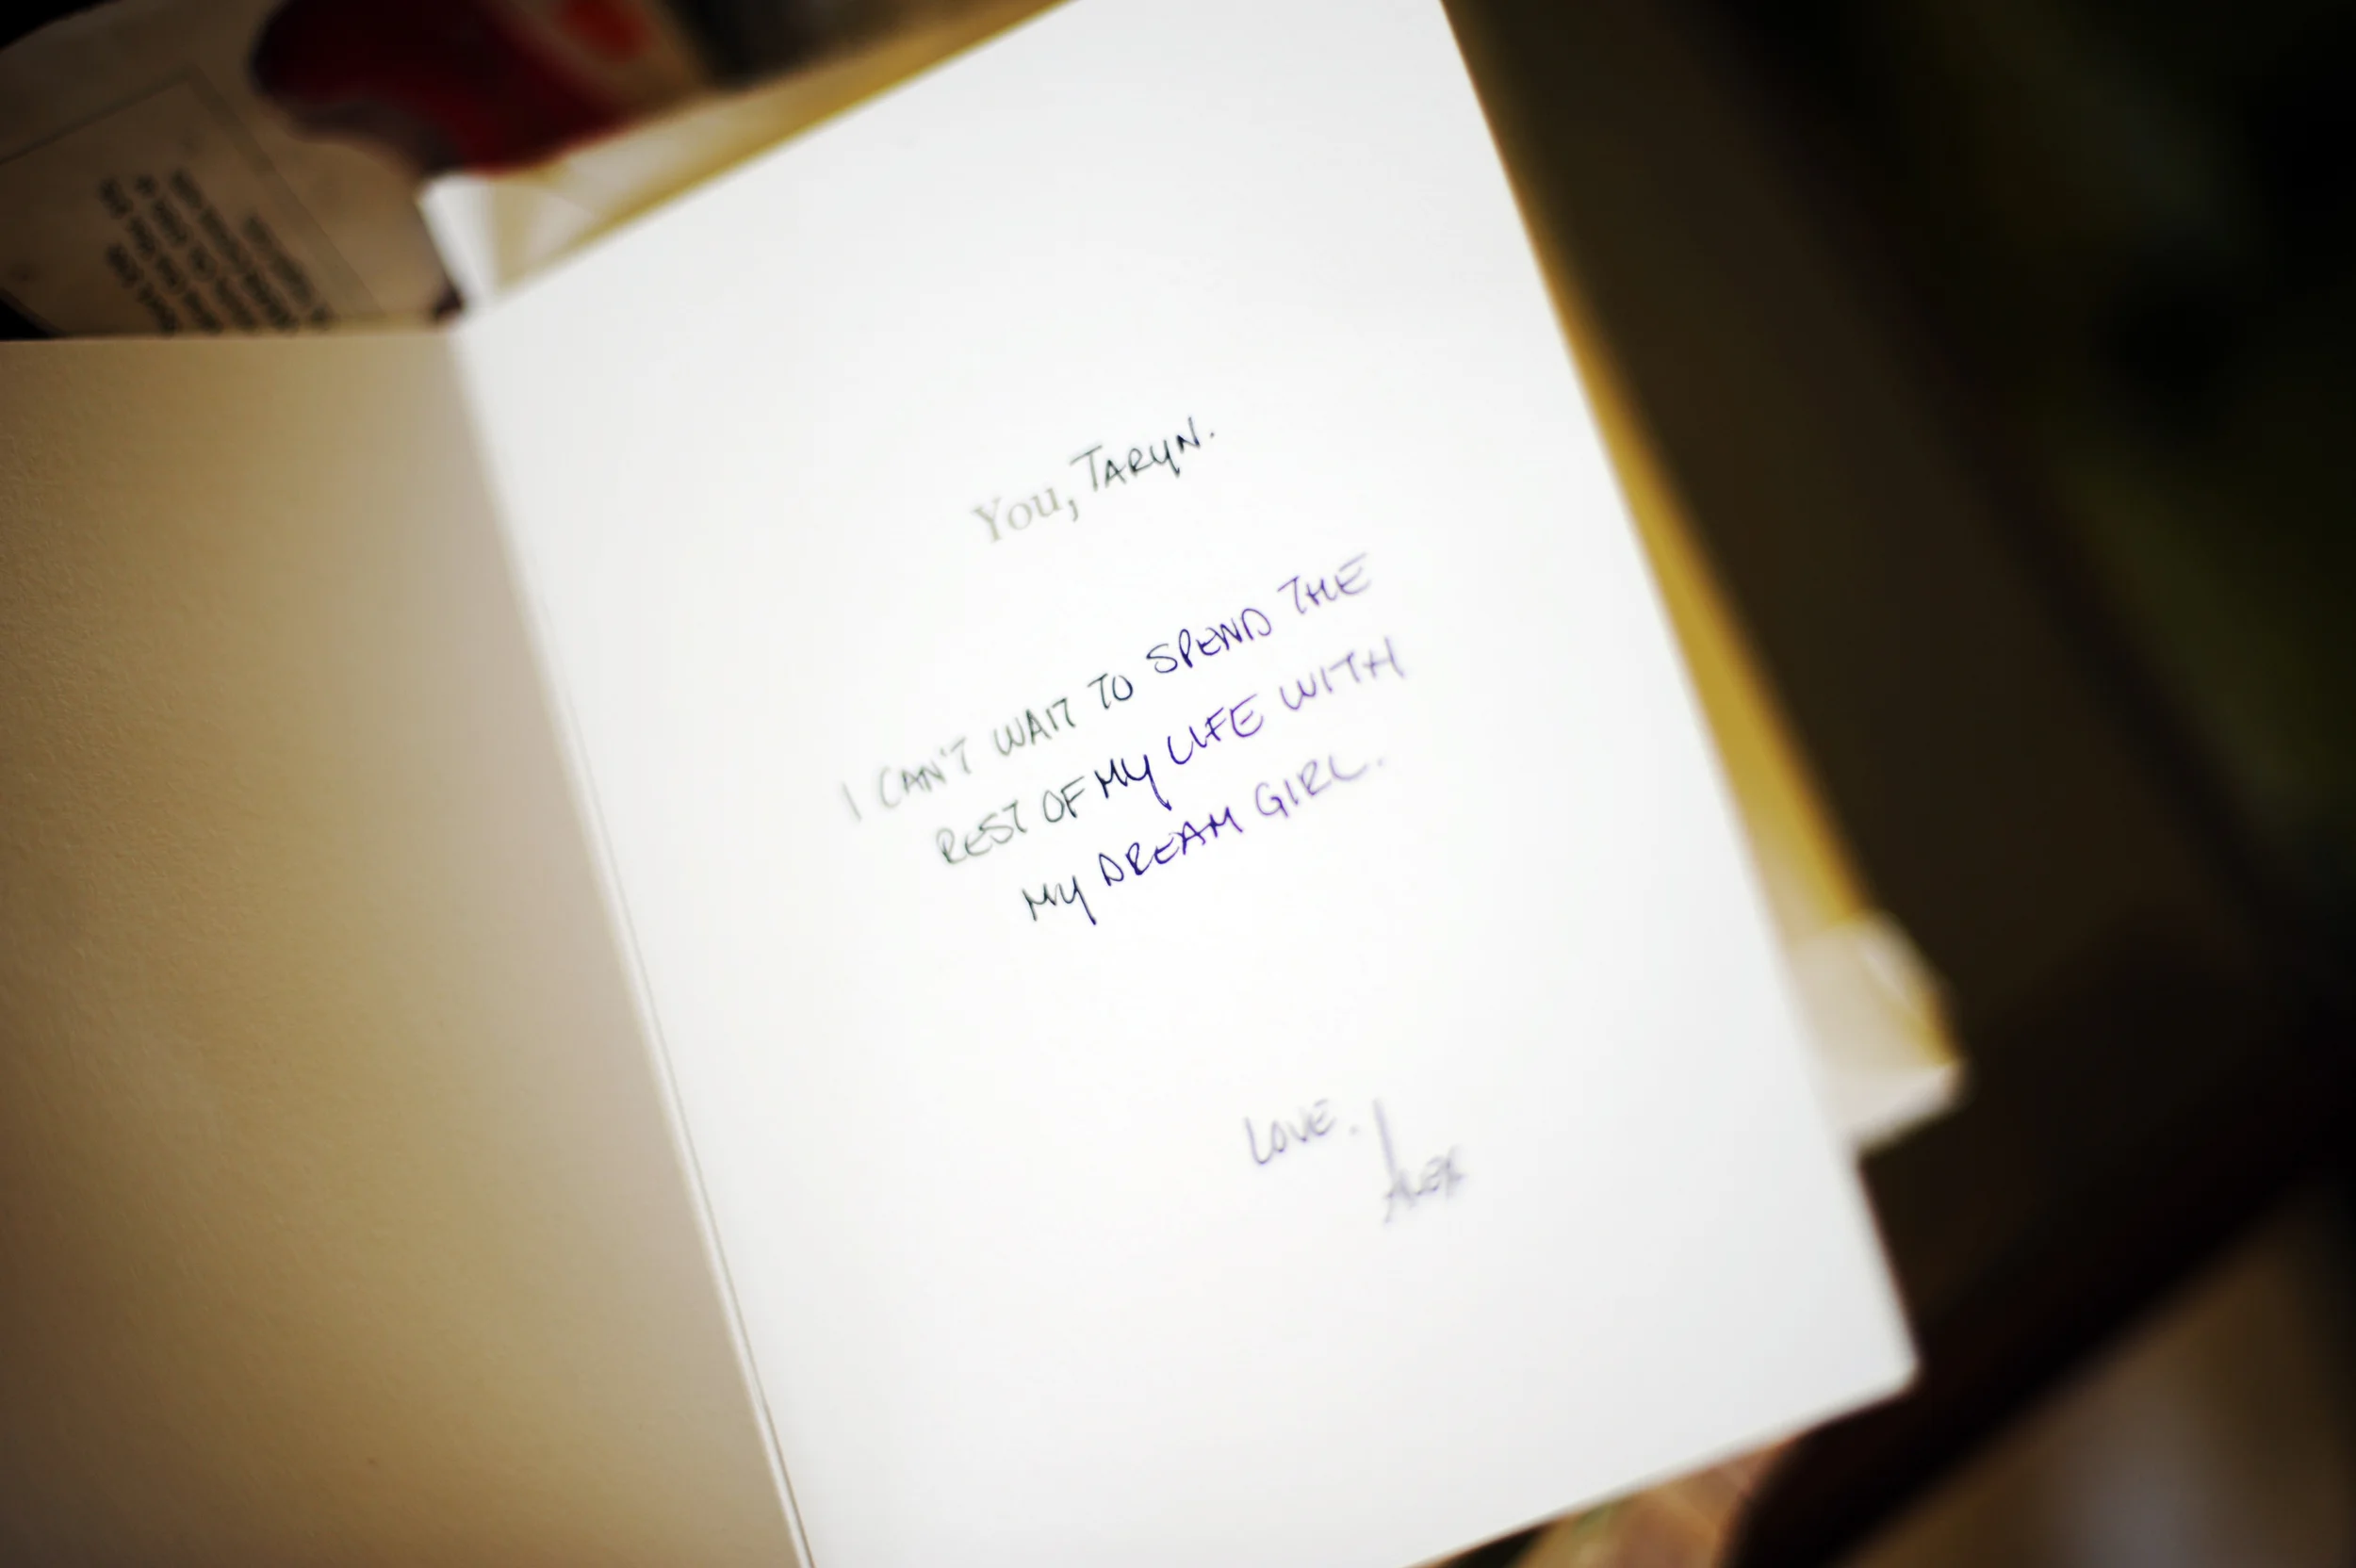 You, TARYN.
I CAN'T WAIT TO SPEND THE
REST OF MY LIFE WITH
MY DREAM GIRL.
LOVE.
ALEX